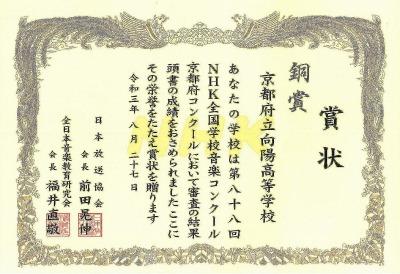 賞状
銅賞
京都府立向陽高等学校
あなたの学校は第八十八回
NHK全国学校音楽コンクール
京都府コンクールにおいて審査の結果
頭書の成績をおさめられました ここに
その栄誉をたたえ賞状を贈ります
令和三年八月二十七日
日本放送協会
会長 前田晃伸
全日本音楽教育研究会
会長 福井直敬
NHK